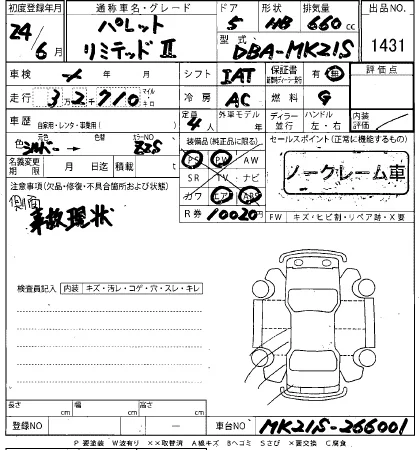 初度登録年月 通称車名・グレード ドア 形状 排気量 出品NO.
24 / 6月 パレット リミテッドⅡ 5 HB 660cc
型式 DBA-MK21S 1431
車検 年 月 シフト IAT 保証書 有 無 評価点
走行 32,710 マイル キロ 冷房 AC 燃料 G
車歴 自家用・レンタ・事業用( ) 定員 4人 外車モデル年 ディーラー 並行 ハンドル 左・右 内装評価
色 シルバー 元色 カラーNO. Z2S 装備品(純正品に限る) セールスポイント(正常に機能するもの)
名義変更期限 月 日迄 積載 t PS PW AW ノークレーム車
注意事項(欠品・修復・不具合箇所および状態) SR TV ナビ
側面 カワ エアB ABS
事故現状 R券 10020円 FW キズ・ヒビ割・リペア跡・X要
検査員記入 内装 キズ・汚レ・コゲ・穴・スレ・キレ
長さ cm 幅 cm 高さ cm
登録NO ー 車台NO MK21S-266001
P 要塗装 W波有り ××取替済 A線キズ Bヘコミ Sさび ×要交換 C腐食